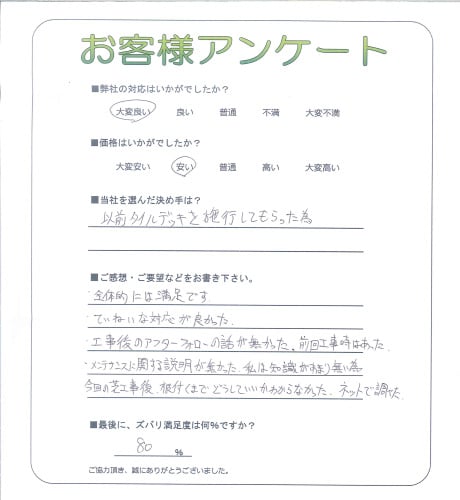 お客様アンケート
■弊社の対応はいかがでしたか？
大変良い 良い 普通 不満 大変不満
■価格はいかがでしたか？
大変安い 安い 普通 高い 大変高い
■当社を選んだ決め手は？
以前タイルデッキを施行してもらった為
■ご感想・ご要望などをお書き下さい。
・全体的には満足です
・ていねいな対応が良かった.
・工事後のアフターフォローの話が無かった。前回工事時はあった.
・メンテナンスに関する説明が無かった. 私は知識があまり無い為
今回の芝工事後、根付くまでどうしていいかわからなかった. ネットで調べた.
■最後に、ズバリ満足度は何%ですか？
80 %
ご協力頂き、誠にありがとうございました。